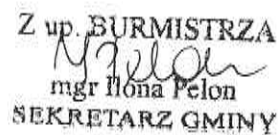 Z up. BURMISTRZA
mgr Ilona Pelon
SEKRETARZ GMINY